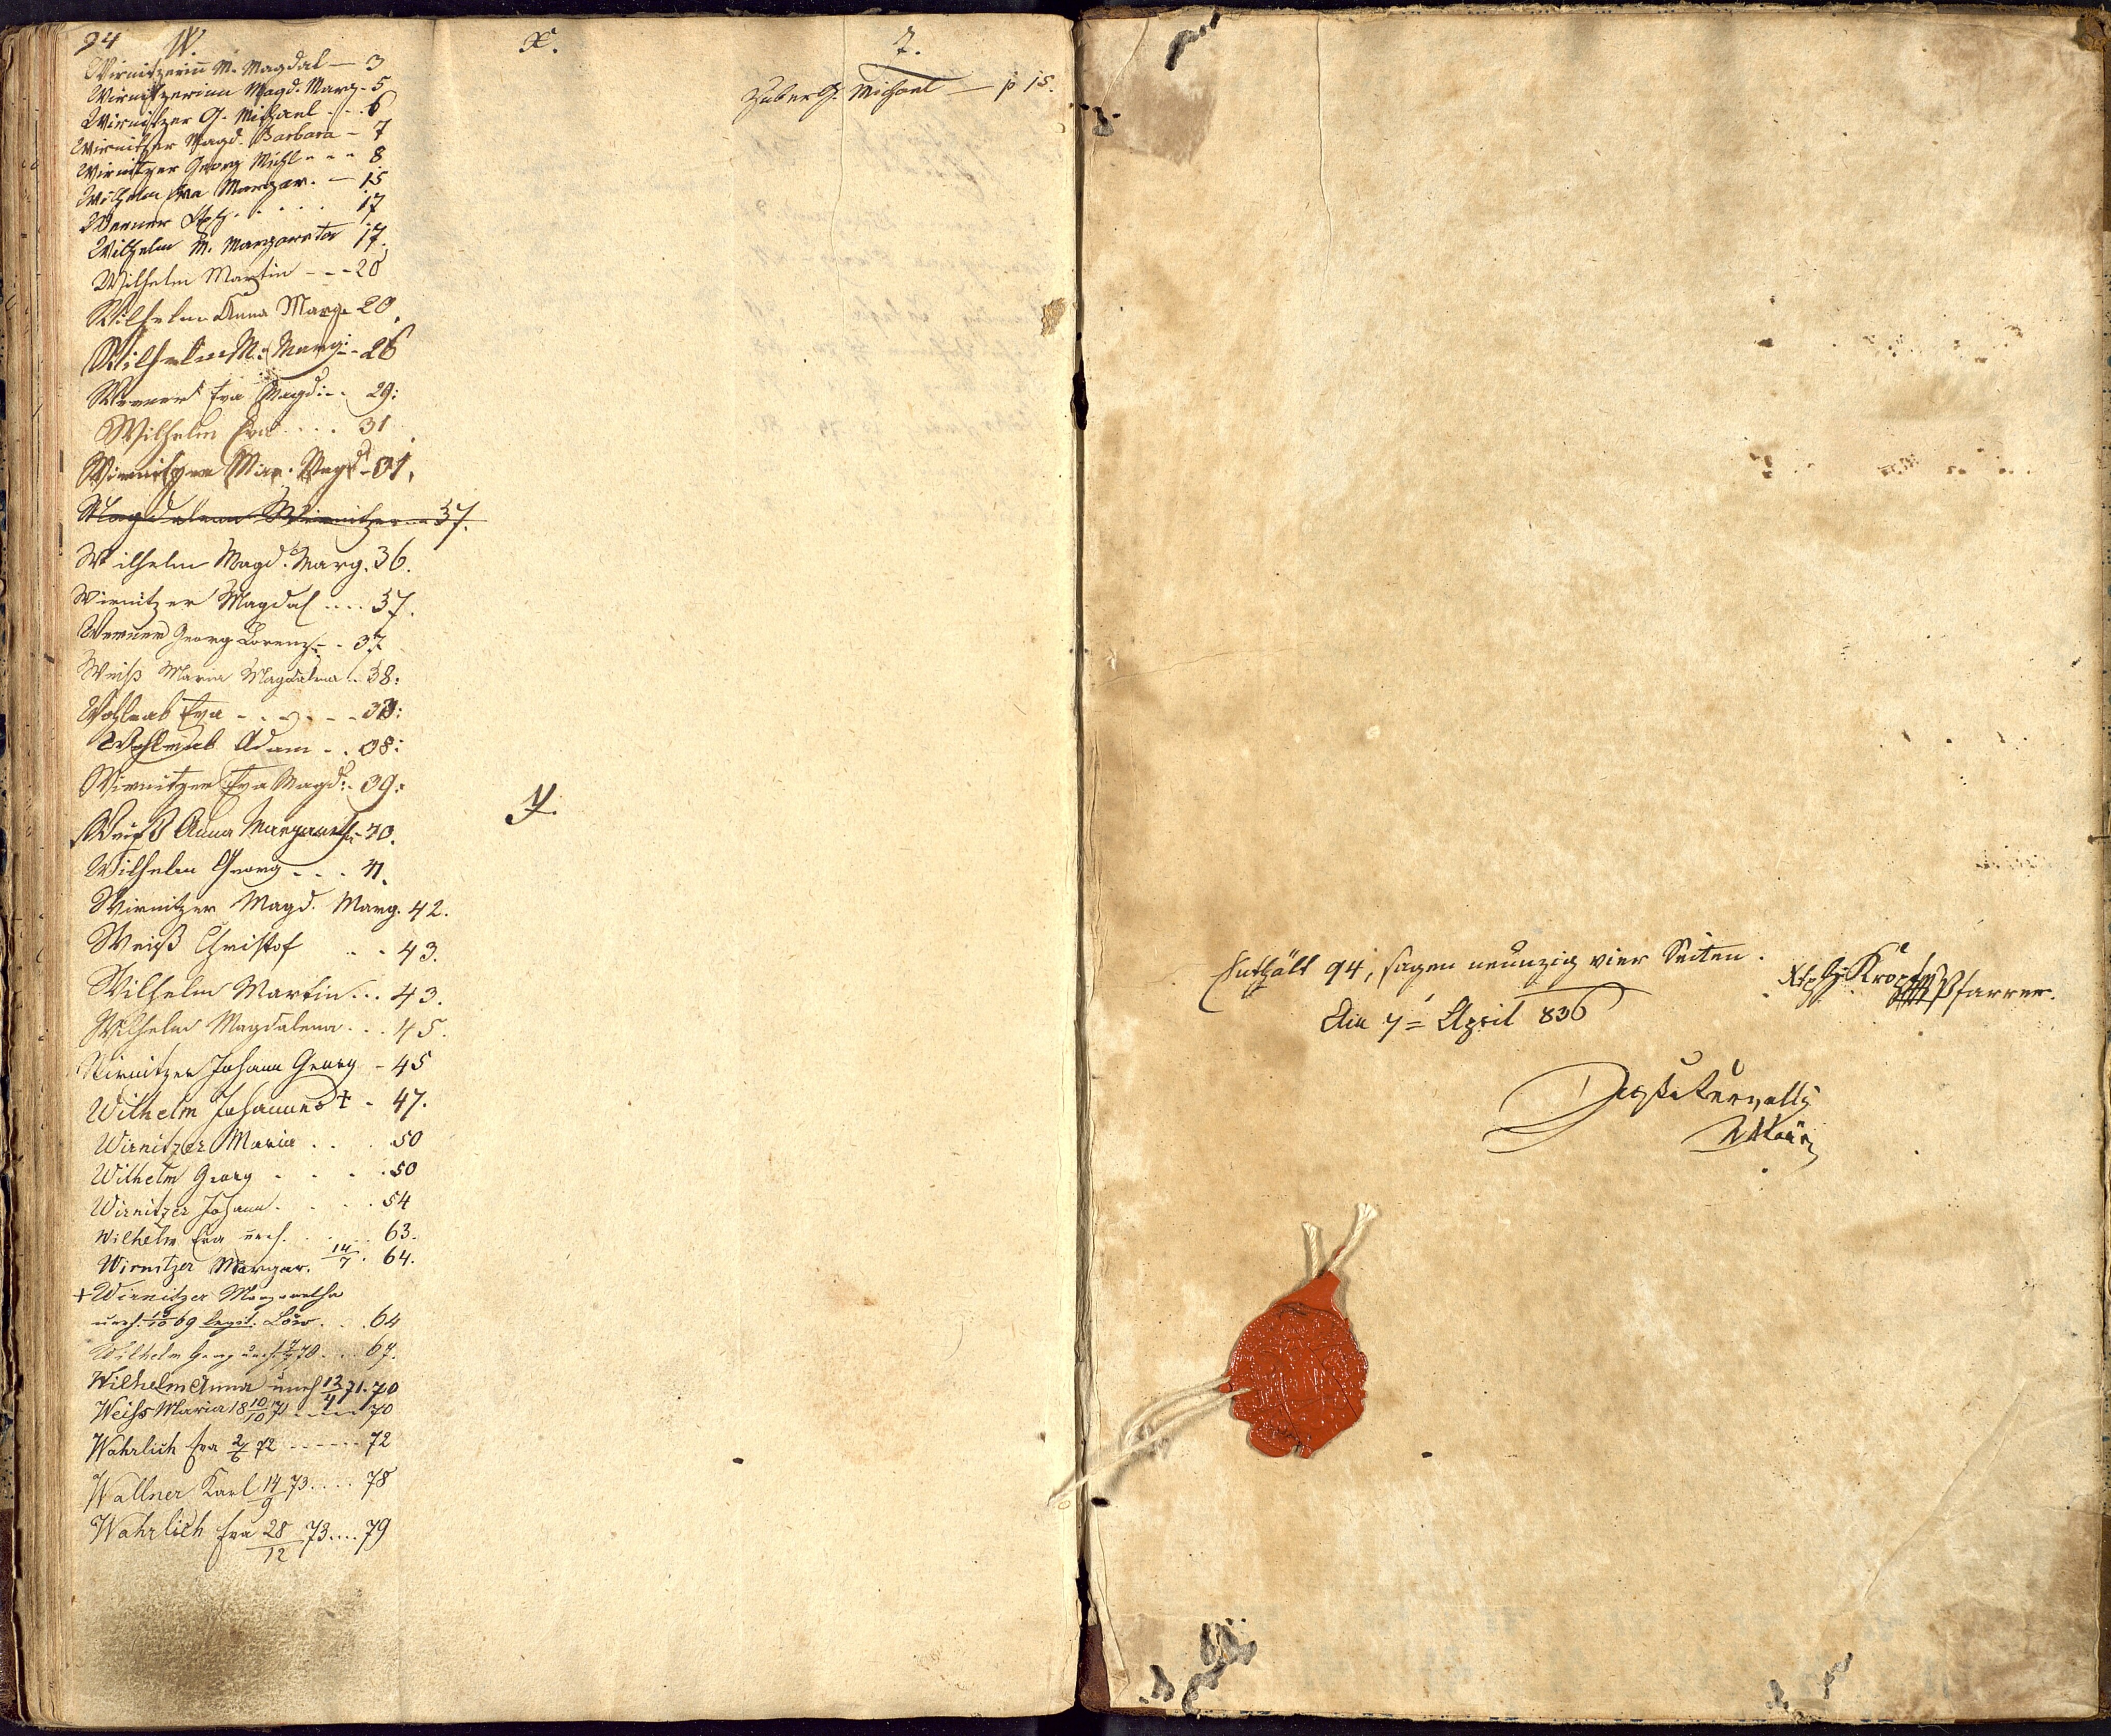 94 W.
Wirnitzerinn M. Magdal — 3
Wirnitzerinn Magd. Marg - 5
Wirnitzer G. Michael - - 6
Wirnitzer Magd. Barbara - 7
Wirnitzer Georg Michl - - - 8
Wilhelm Eva Margar. — 15
Werner . . . . . 17
Wilhelm M. Margareta 17.
Wilhelm Martin - - - 20
Wilhelm Anna Marg. 20.
Wilhelm M. Marg: - 26
Werner Eva Magd: - . 29:
Wilhelm Eva . . . . 31
Wirnitzer Mar. Magd - 31.
Magdalena Wirnitzer 37.
Wilhelm Magd. Marg. 36.
Wirnitzer Magdal .... 37.
Werner Georg Lorenz - - 37
Weiß Maria Magdalena .. 38:
Wohlrab Eva - - - - - 38:
Wohlrab Adam - . 38:
Wirnitzer Eva Magd: - 39:
Weiß Anna Margareth - 40.
Wilhelm Georg - - . 41.
Wirnitzer Magd. Marg. 42.
Weiß Christof . . 43.
Wilhelm Martin ... 43.
Wilhelm Magdalena ... 45.
Wirnitzer Johann Georg - 45
Wilhelm Johannes + - 47.
Wirnitzer Maria . . . 50
Wilhelm Georg - - - . 50
Wirnitzer Johann . . . . 54
Wilhelm Eva uneh. . . . . 63.
Wirnitzer Margar. 14/7 . 64.
+ Wirnitzer Margaretha
uneh. 69 legit. Löw . . . 64
Wilhelm Georg unehl. 70 . . . 67.
Wilhelm Anna uneh 12/4 71. 70
Weiss Maria 18 10/10 71 ---- 70
Wahrlich Eva 2/6 72 ------ 72
Wallner Karl 14/9 73 .... 78
Wahrlich Eva 28/12 73 .... 79
X.
Y.
Z.
Huber G. Michael — p 15.
Enthält 94, sagen neunzig vier Seiten.
Pfarrer.
Am 7= April 836